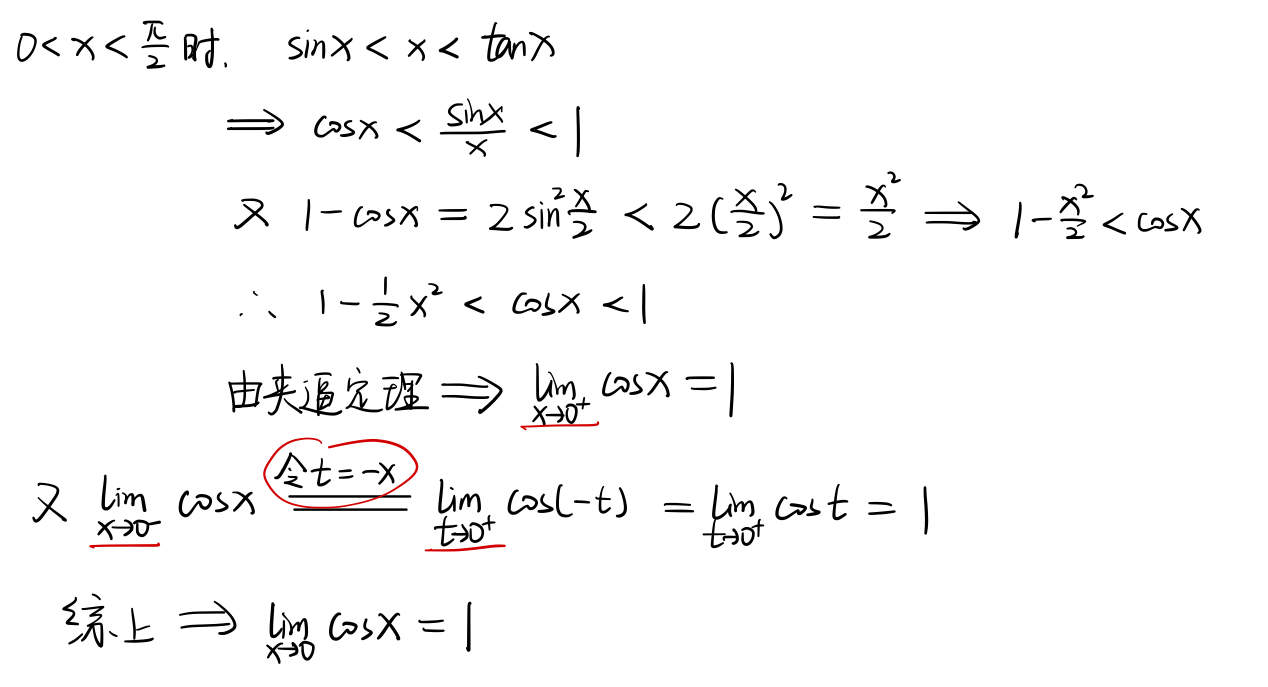 0<x<π/2 时, sinx < x < tanx
⟹ cosx < sinx/x < 1
又 1-cosx = 2sin²x/2 < 2(x/2)² = x²/2 ⟹ 1-x²/2 < cosx
∴ 1-1/2x² < cosx < 1
由夹逼定理 ⟹ lim x→0⁺ cosx = 1
又 lim x→0⁻ cosx 令t=-x = lim t→0⁺ cos(-t) = lim t→0⁺ cost = 1
综上 ⟹ lim x→0 cosx = 1